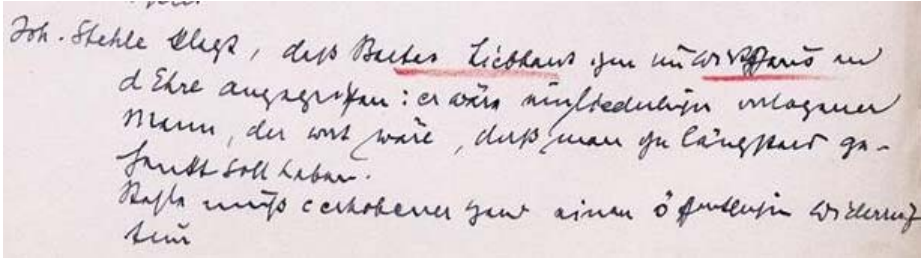 Joh. Stehle klagt, daß Baltas Liebhaut ihn im Wirtshaus an
d Ehre angegriffen: er wäre ein liederlicher verlogener
Mann, der wert wäre, daß man ihn längstens ge-
henkt soll haben.
Stehle muß c erhobener Hand einen öffentlichen Widerruf
tun